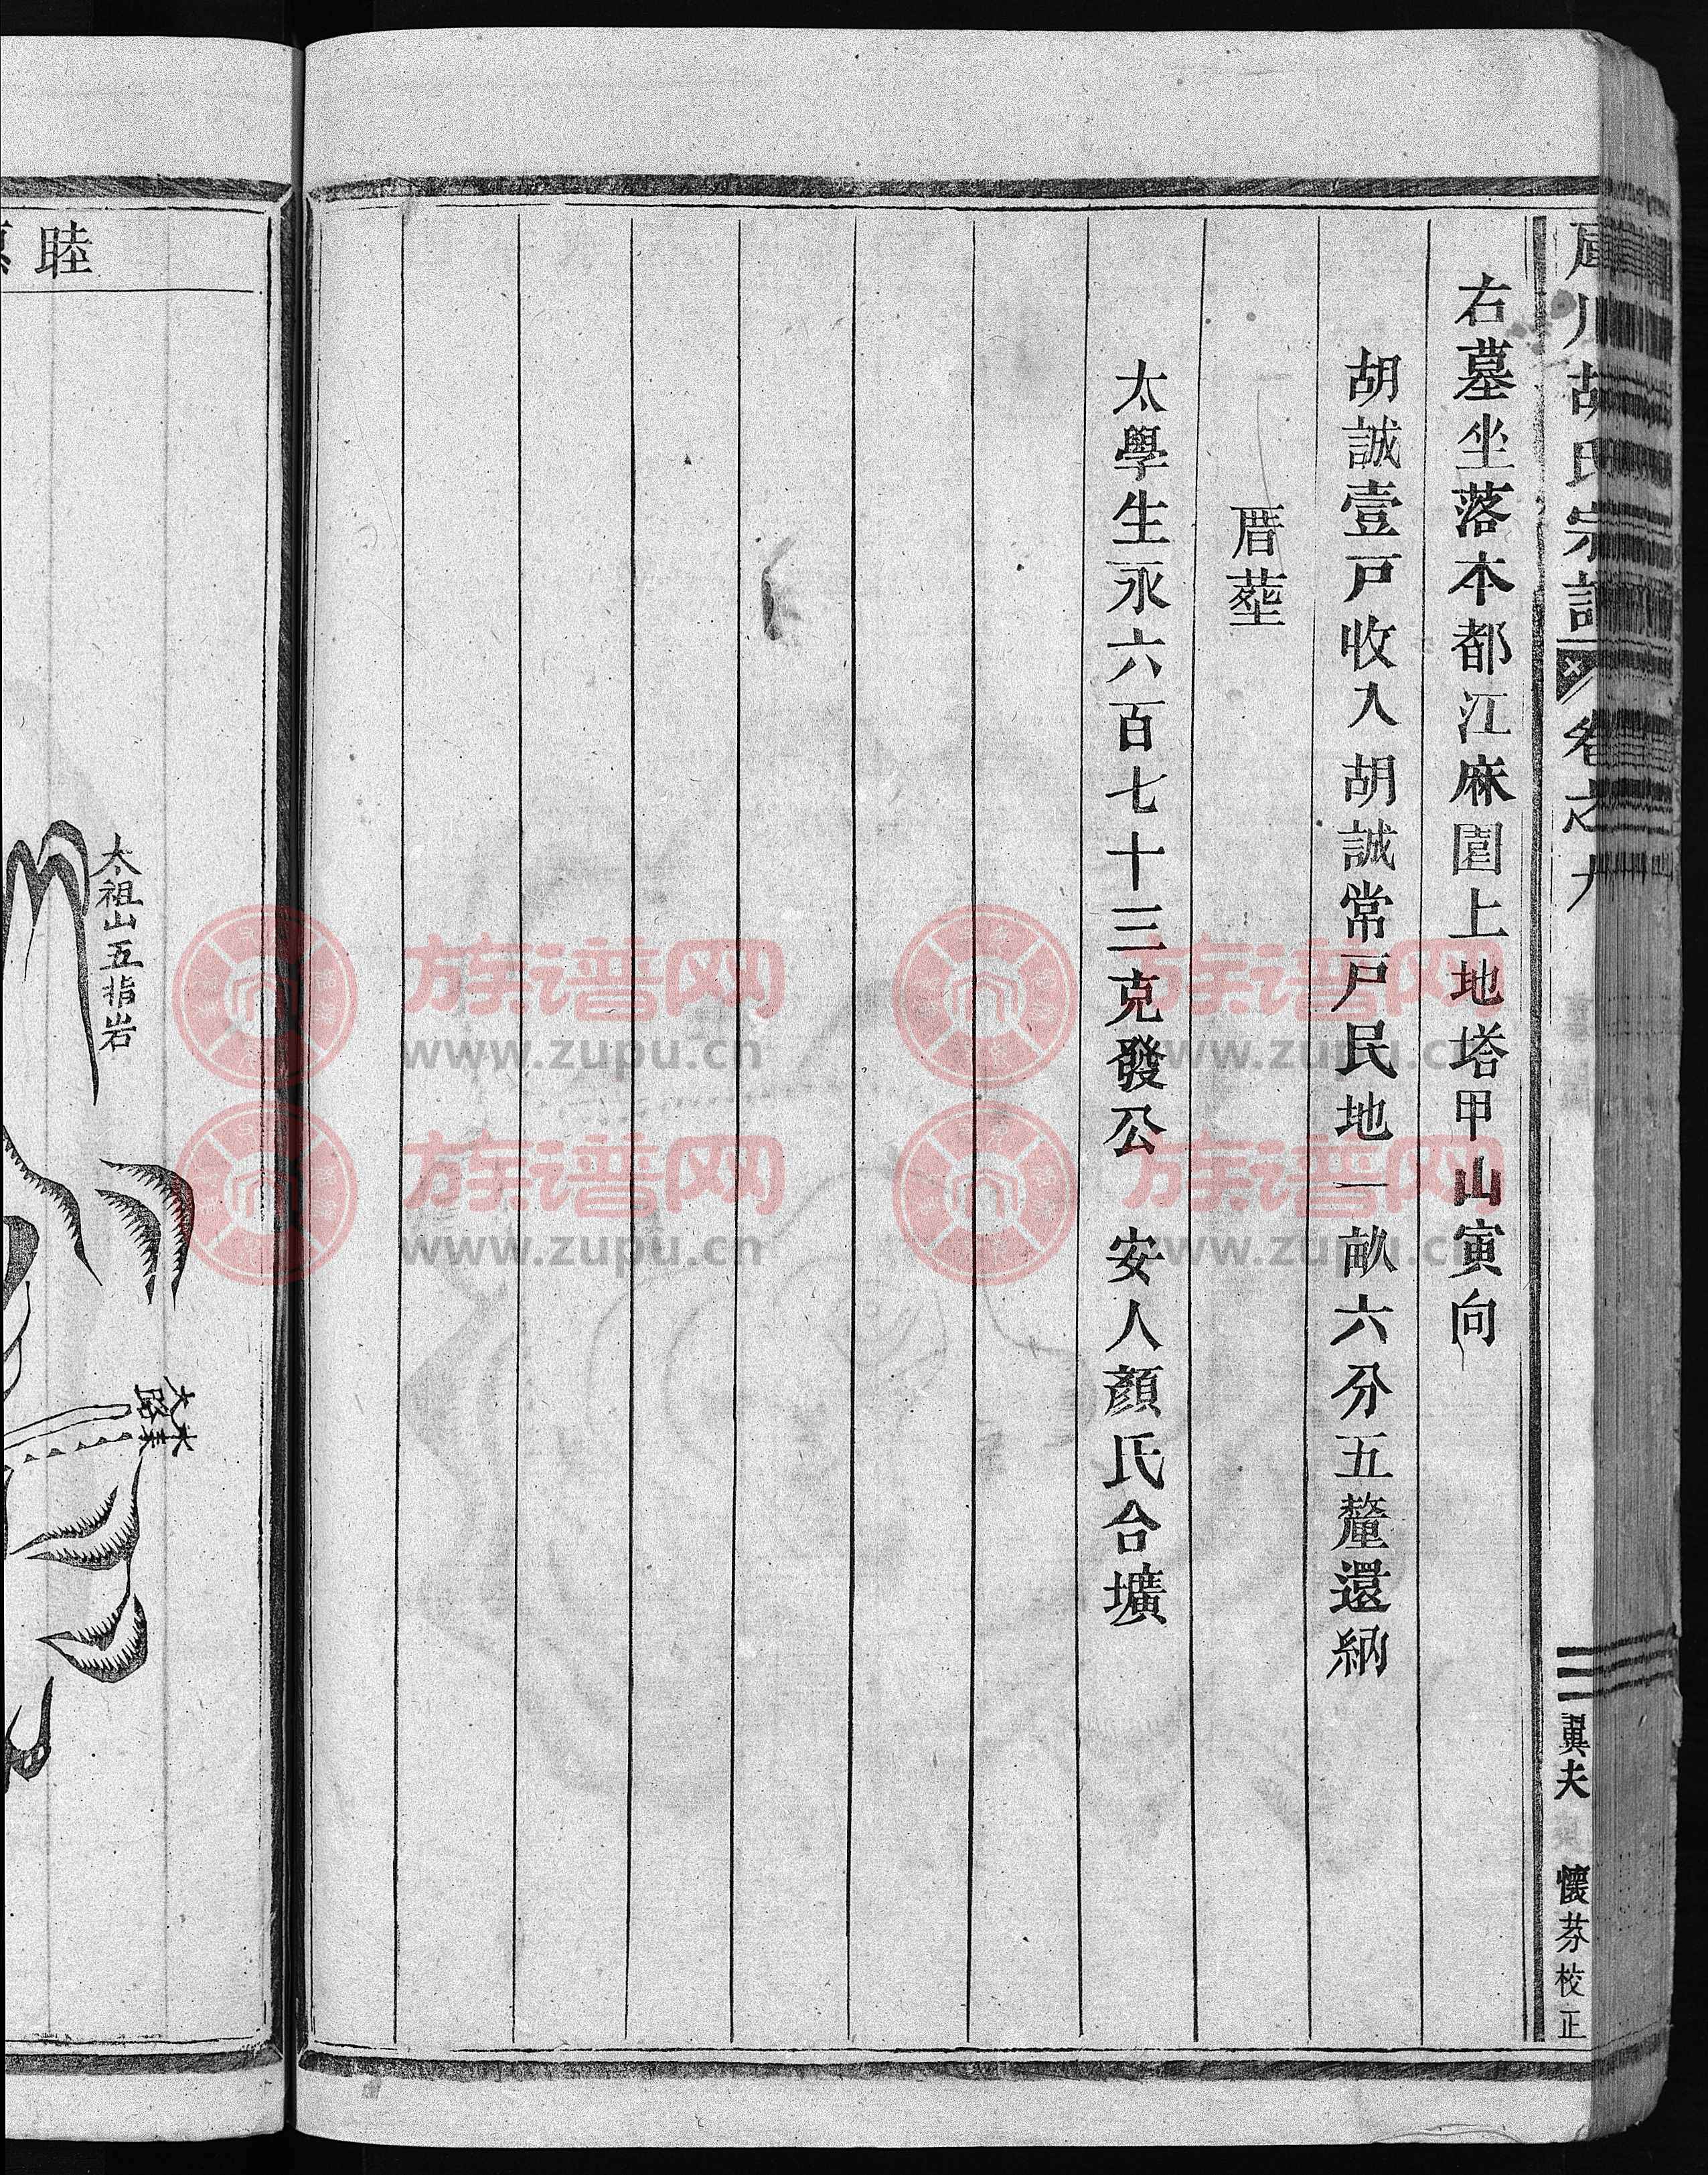 川胡氏宗譜 卷之九 翼夫 懷芬校正
右墓坐落本都江麻園上地塔甲山寅向
胡誠壹戸收入胡誠常戸民地一畝六分五釐還納
厝塟
太學生永六百七十三克發公 安人顏氏合壙
睦
太祖山五指岩
水來
大路
族谱网
www.zupu.cn
族谱网
www.zupu.cn
族谱网
www.zupu.cn
族谱网
www.zupu.cn